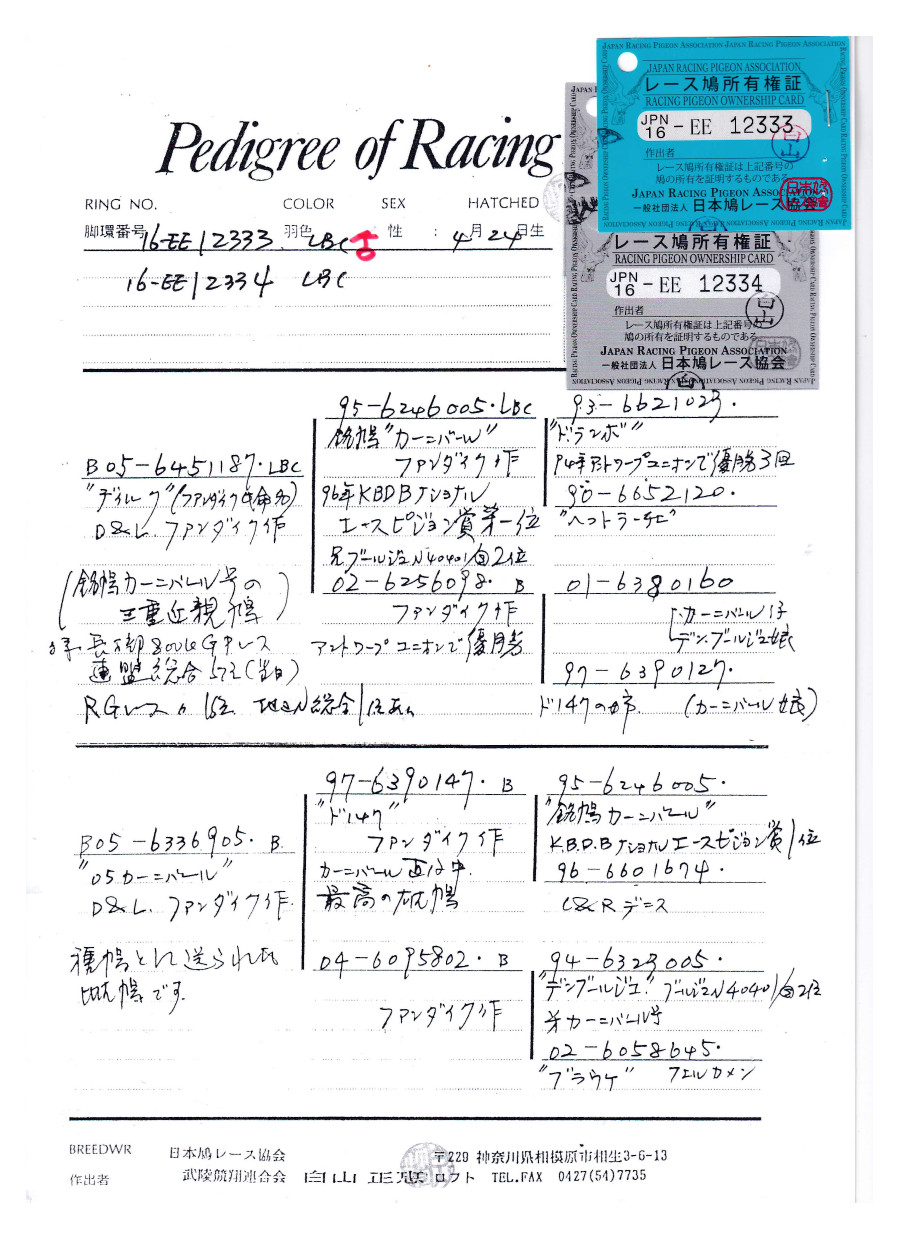 Pedigree of Racing
JAPAN RACING PIGEON ASSOCIATION JAPAN RACING PIGEON ASSOCIATION
JAPAN RACING PIGEON ASSOCIATION
レース鳩所有権証
RACING PIGEON OWNERSHIP CARD
JPN 16 - EE 12333
作出者
白山
レース鳩所有権証は上記番号の
鳩の所有を証明するものである
JAPAN RACING PIGEON ASSOCIATION
一般社団法人 日本鳩レース協会
レース鳩所有権証
RACING PIGEON OWNERSHIP CARD
JPN 16 - EE 12334
作出者
白山
レース鳩所有権証は上記番号の
鳩の所有を証明するものである
JAPAN RACING PIGEON ASSOCIATION
一般社団法人 日本鳩レース協会
RING NO. COLOR SEX HATCHED
脚環番号 16-EE12333 羽色 LBC 性 : 4月24日生
16-EE12334 LBC
B05-6451187. LBC
"ディルク"(ファンダイク氏命名)
D&L. ファンダイク作
(銘鳩カーニバル号の
三重近親鳩)
連盟総合57位(当日)
95-6246005. LBC
銘鳩"カーニバル"
ファンダイク作
96年KBDBナショナル
エースピジョン賞第一位
兄ブールジュN40401羽2位
02-6256098. B
ファンダイク作
アントワープユニオンで優勝
93-6621023.
"ドランボ"
94年アントワープユニオンで優勝3回
90-6652120.
01-6380160
カーニバル×
デンブルジュ娘
97-6390127.
ド147の姉. (カーニバル娘)
B05-6336905. B.
"05カーニバル"
D&L. ファンダイク作
種鳩として送られた
鳩です.
97-6390147. B
"ド147"
ファンダイク作
カーニバル直仔中.
最高の雄鳩
04-6095802. B
ファンダイク作
95-6246005.
"銘鳩カーニバル"
K.B.D.Bナショナルエースピジョン賞1位
96-6601674.
L&Rデニス
94-6323005.
"デンブールジュ" ブールジュN40401羽2位
弟カーニバル号
02-6058645.
"ブラウケ" フェルカメン
BREEDWR
作出者
日本鳩レース協会
武陵競翔連合会
白山正忠 ロフト
〒229 神奈川県相模原市相生3-6-13
TEL.FAX 0427(54)7735